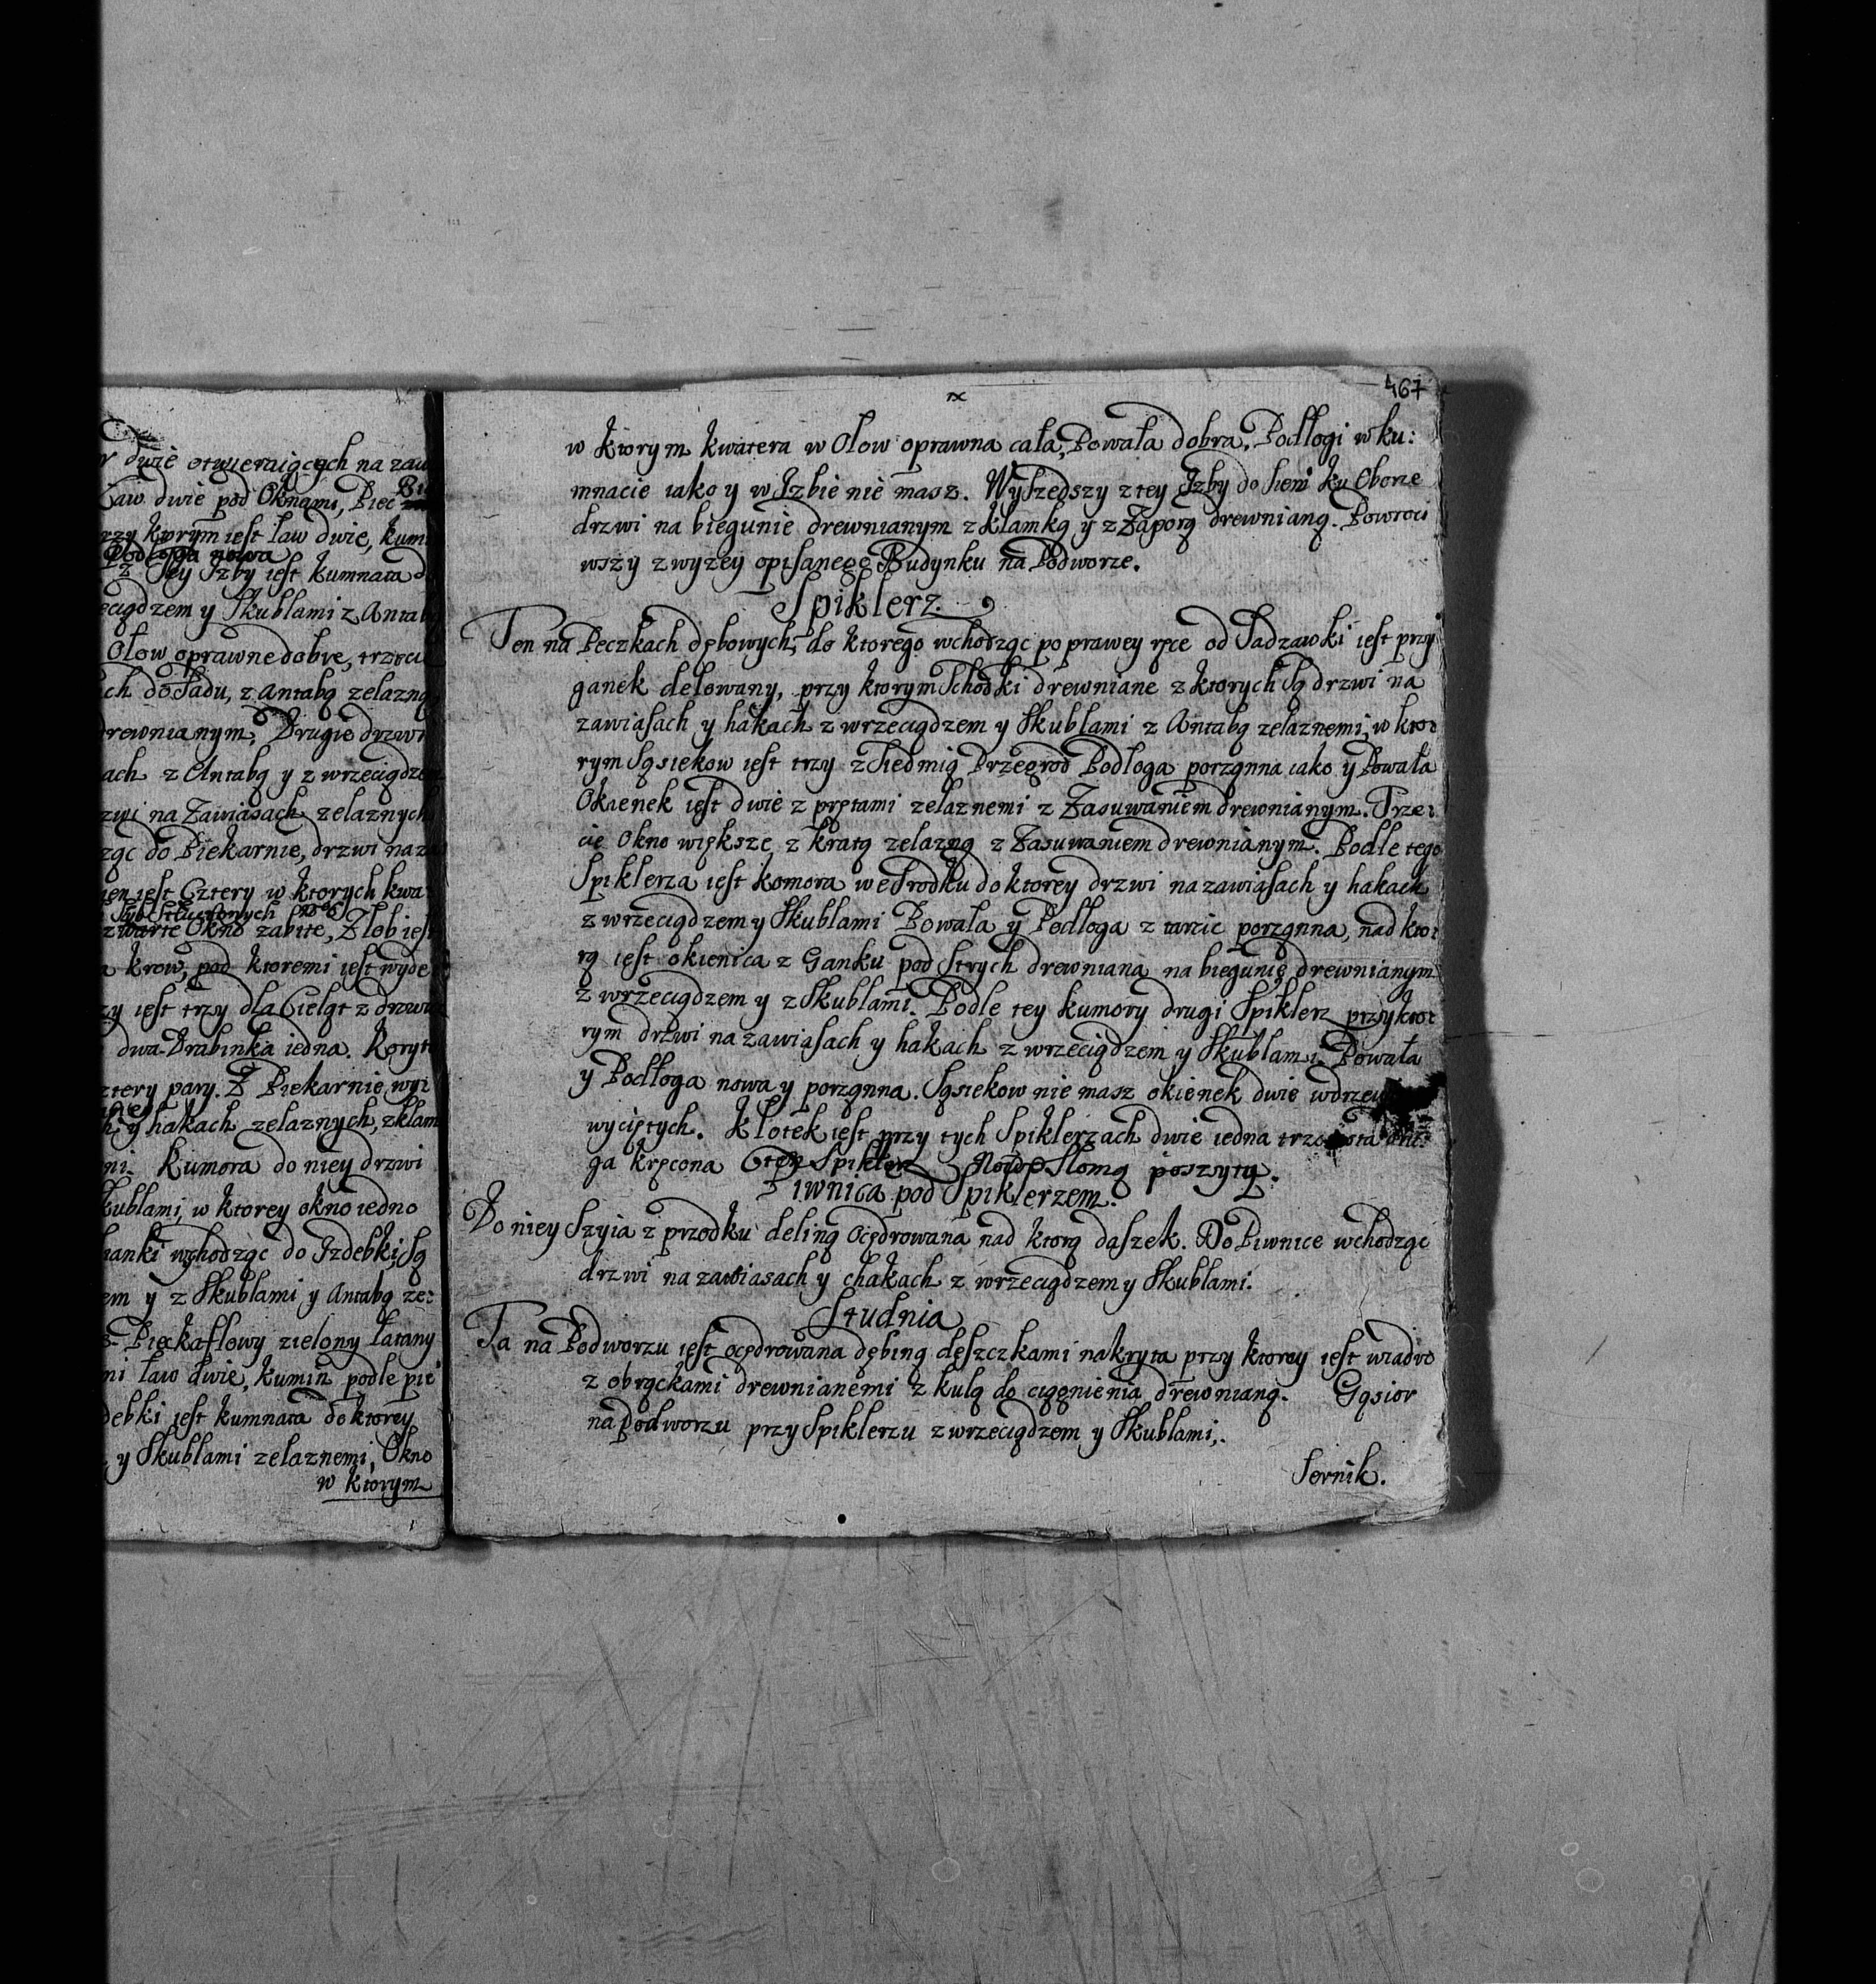 dwie otwieraiących na zaw
Ław dwie pod Oknami, Piec
rzy ktorym iest ław dwie, kum
Podłoga nowa
z Tey Izby iest kumnata d
eciądzem y Skublami z Antab
Ołow oprawne dobre, trzeci
ch do Sadu, z Antabą zelazną
drewnianym, Drugie drzwi
ach z Antabą y z wrzeciądze
zwi na Zawiasach zelaznych
ząc do Piekarnie, drzwi na za
iest Cztery w ktorych kwa
zwarte Okno zabite, Złob iest
krow, pod ktoremi iest wyde
zy iest trzy dla Cieląt z drzwi
dwa Drabinka iedna. Koryt
cztery pary. Z Piekarnie wyi
y hakach zelaznych, z klam
ni. Kumora do niey drzwi
kublami, w ktorey okno iedno
ianki wchodząc do Izdebki, są
em y z Skublami y Antabą ze:
Piękaflowy zielony łatany
ni ław dwie, kumin podle pie
debki iest kumnata do ktorey
y Skublami zelaznemi, Okno
w ktorym
467
w ktorym kwatera w Ołow oprawna cała, Powała dobra, Podłogi w ku:
mnacie iako y w Izbie nie masz. Wyszedszy z tey Izby do sieni ku Oborze
drzwi na biegunie drewnianym z klamką y z Zaporą drewnianą. Powroci
wszy z wyzey opisanego Budynku na Podworze.
Spiklerz
Ten na Peczkach dębowych, do ktorego wchodząc po prawey ręce od Sadzawki iest przy
ganek delowany, przy ktorym Schodki drewniane z ktorych są drzwi na
zawiasach y hakach z wrzeciądzem y Skublami z Antabą zelaznemi, w kto:
rym Sąsiekow iest trzy z Siedmią Przegrod Podłoga porządnna iako y Powała
Okienek iest dwie z prętami zelaznemi z Zasuwaniem drewnianym. Trze:
cie Okno większe z kratą zelazną z Zasuwaniem drewnianym. Podle tego
Spiklerza iest komora we srodku do ktorey drzwi na zawiasach y hakach
z wrzeciądzem y Skublami Powała y Podłoga z tarcic porządnna, nad kto:
rą iest okienica z Ganku pod Strych drewniana na biegunie drewnianym
z wrzeciądzem y z Skublami. Podle tey kumory drugi Spiklerz przy kto:
rym drzwi na zawiasach y hakach z wrzeciądzem y Skublami. Powała
y Podłoga nowa y porządnna. Sąsiekow nie masz okienek dwie w
wyciętych. Kłotek iest przy tych Spiklerzach dwie iedna
ga kręcona ten Spiklerz Nowo Słomą poszyty.
Piwnica pod Spiklerzem.
Do niey Szyia z przodku deliną ocędrowana nad ktorą daszek. Do Piwnice wchodząc
drzwi na zawiasach y chakach z wrzeciądzem y Skublami.
Studnia
Ta na Podworzu iest ocędrowana dębiną deszczkami nakryta przy ktorey iest wiadro
z obrączkami drewnianemi z kulą do ciągnienia drewnianą. Gąsior
na Podworzu przy Spiklerzu z wrzeciądzem y Skublami.
Sernik.